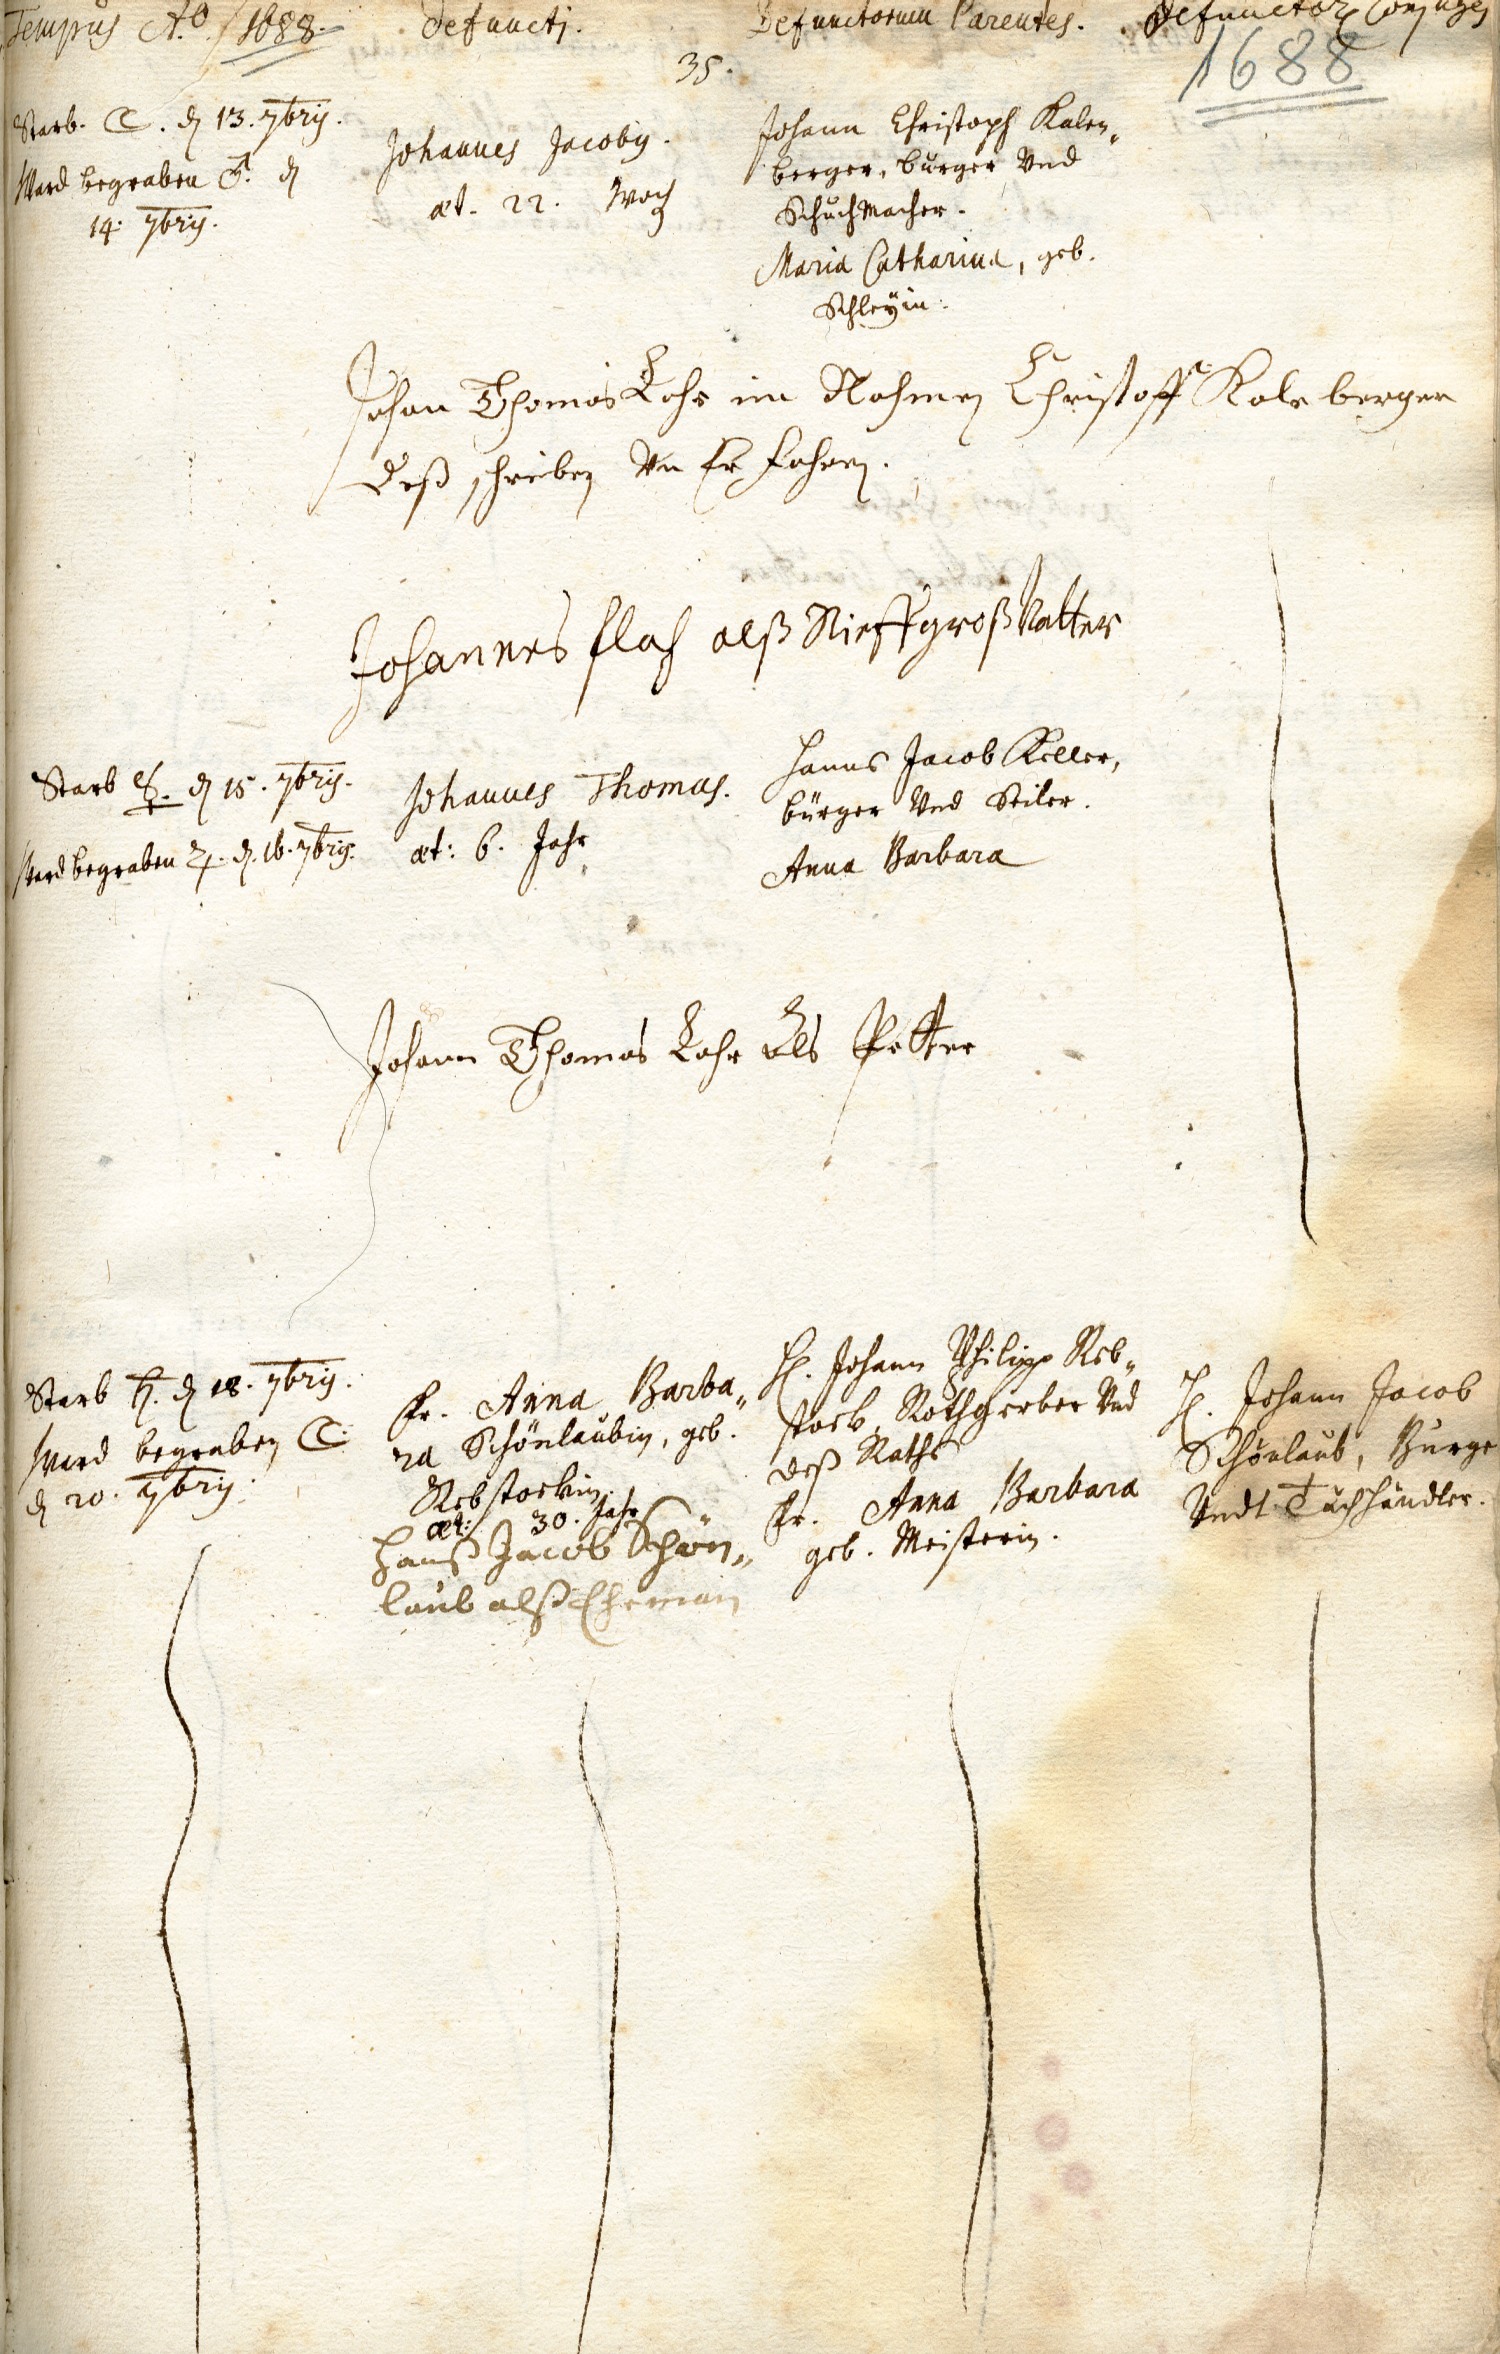 Tempus Aō 1688. Defuncti. Defunctorum Parentes. Defunctor. Conjuges
35.
1688
Starb. ☾. d 13. 7bris.
Ward begraben ♂. d
14. 7bris.
Johannes Jacobus.
æt. 22. Woch
Johann Christoph Kalen„
berger, burger Vnd
Schuchmacher.
Maria Catharina, geb.
Schleÿin.
Johan Thomas Lohr im Nahmen Christoff Kalr berger
deß schreiben Vn Er fahren.
Johannes flach alß Stieffgroß Vatter
Starb ☿. d 15. 7bris.
Ward begraben ♃. d. 16. 7bris.
Johannes Thomas.
æt: 6. Jahr
Hanns Jacob Keller,
bürger Vnd Seiler.
Anna Barbara
Johann Thomas Lohr als Petter
Starb ♄. d 18. 7bris.
Ward begraben ☾.
d 20. 7bris.
Fr. Anna Barba„
ra Schönlaubin, geb.
Rebstockin.
æt: 30. Jahr
Hanß Jacob Schön„
laub alß Eheman
H. Johann Philipp Reb„
stock, Rothgerber Vnd
deß Raths
Fr. Anna Barbara
geb. Meisterin.
H. Johann Jacob
Schönlaub, Burge
Vndt Tuchhändler.